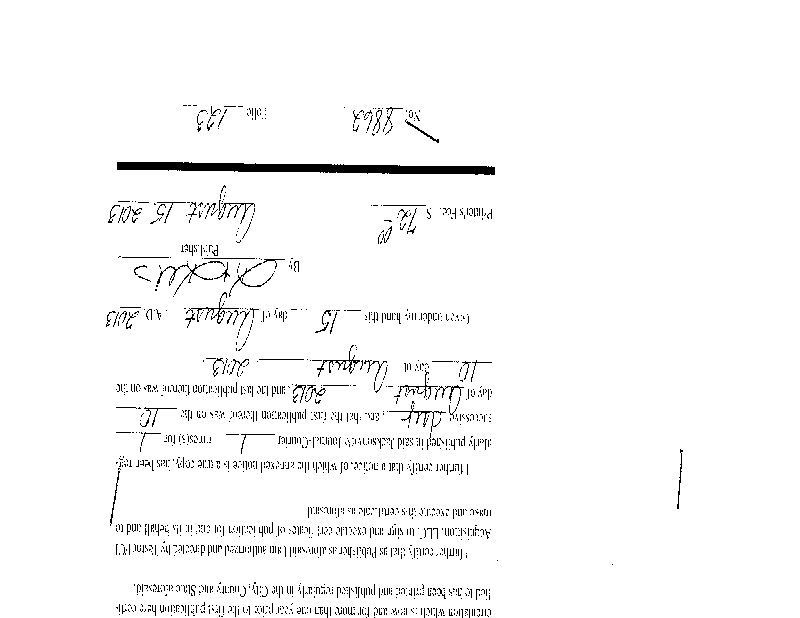 circulation which is now and for more than one year prior to the first publication here certi-
fied to has been printed and published regularly in the City, County and State aforesaid.
I further certify that as Publisher as aforesaid I am authorized and directed by
Acquisition, LLC, to sign and execute certificates of publication for and in its behalf and to
make and execute this certificate as aforesaid.
I further certify that a notice, of which the annexed notice is a true copy, has been reg-
ularly published in said Jacksonville Journal-Courier 1 time(s) for 1
successive day, and that the first publication thereof was on the 10
day of August 2013, and the last publication thereof was on the
10 day of August 2013.
Given under my hand this 15 day of August, A.D. 2013
By
Publisher
Printer's Fee, $ 72.00 August 15 2013
No. 8862 Folio 123